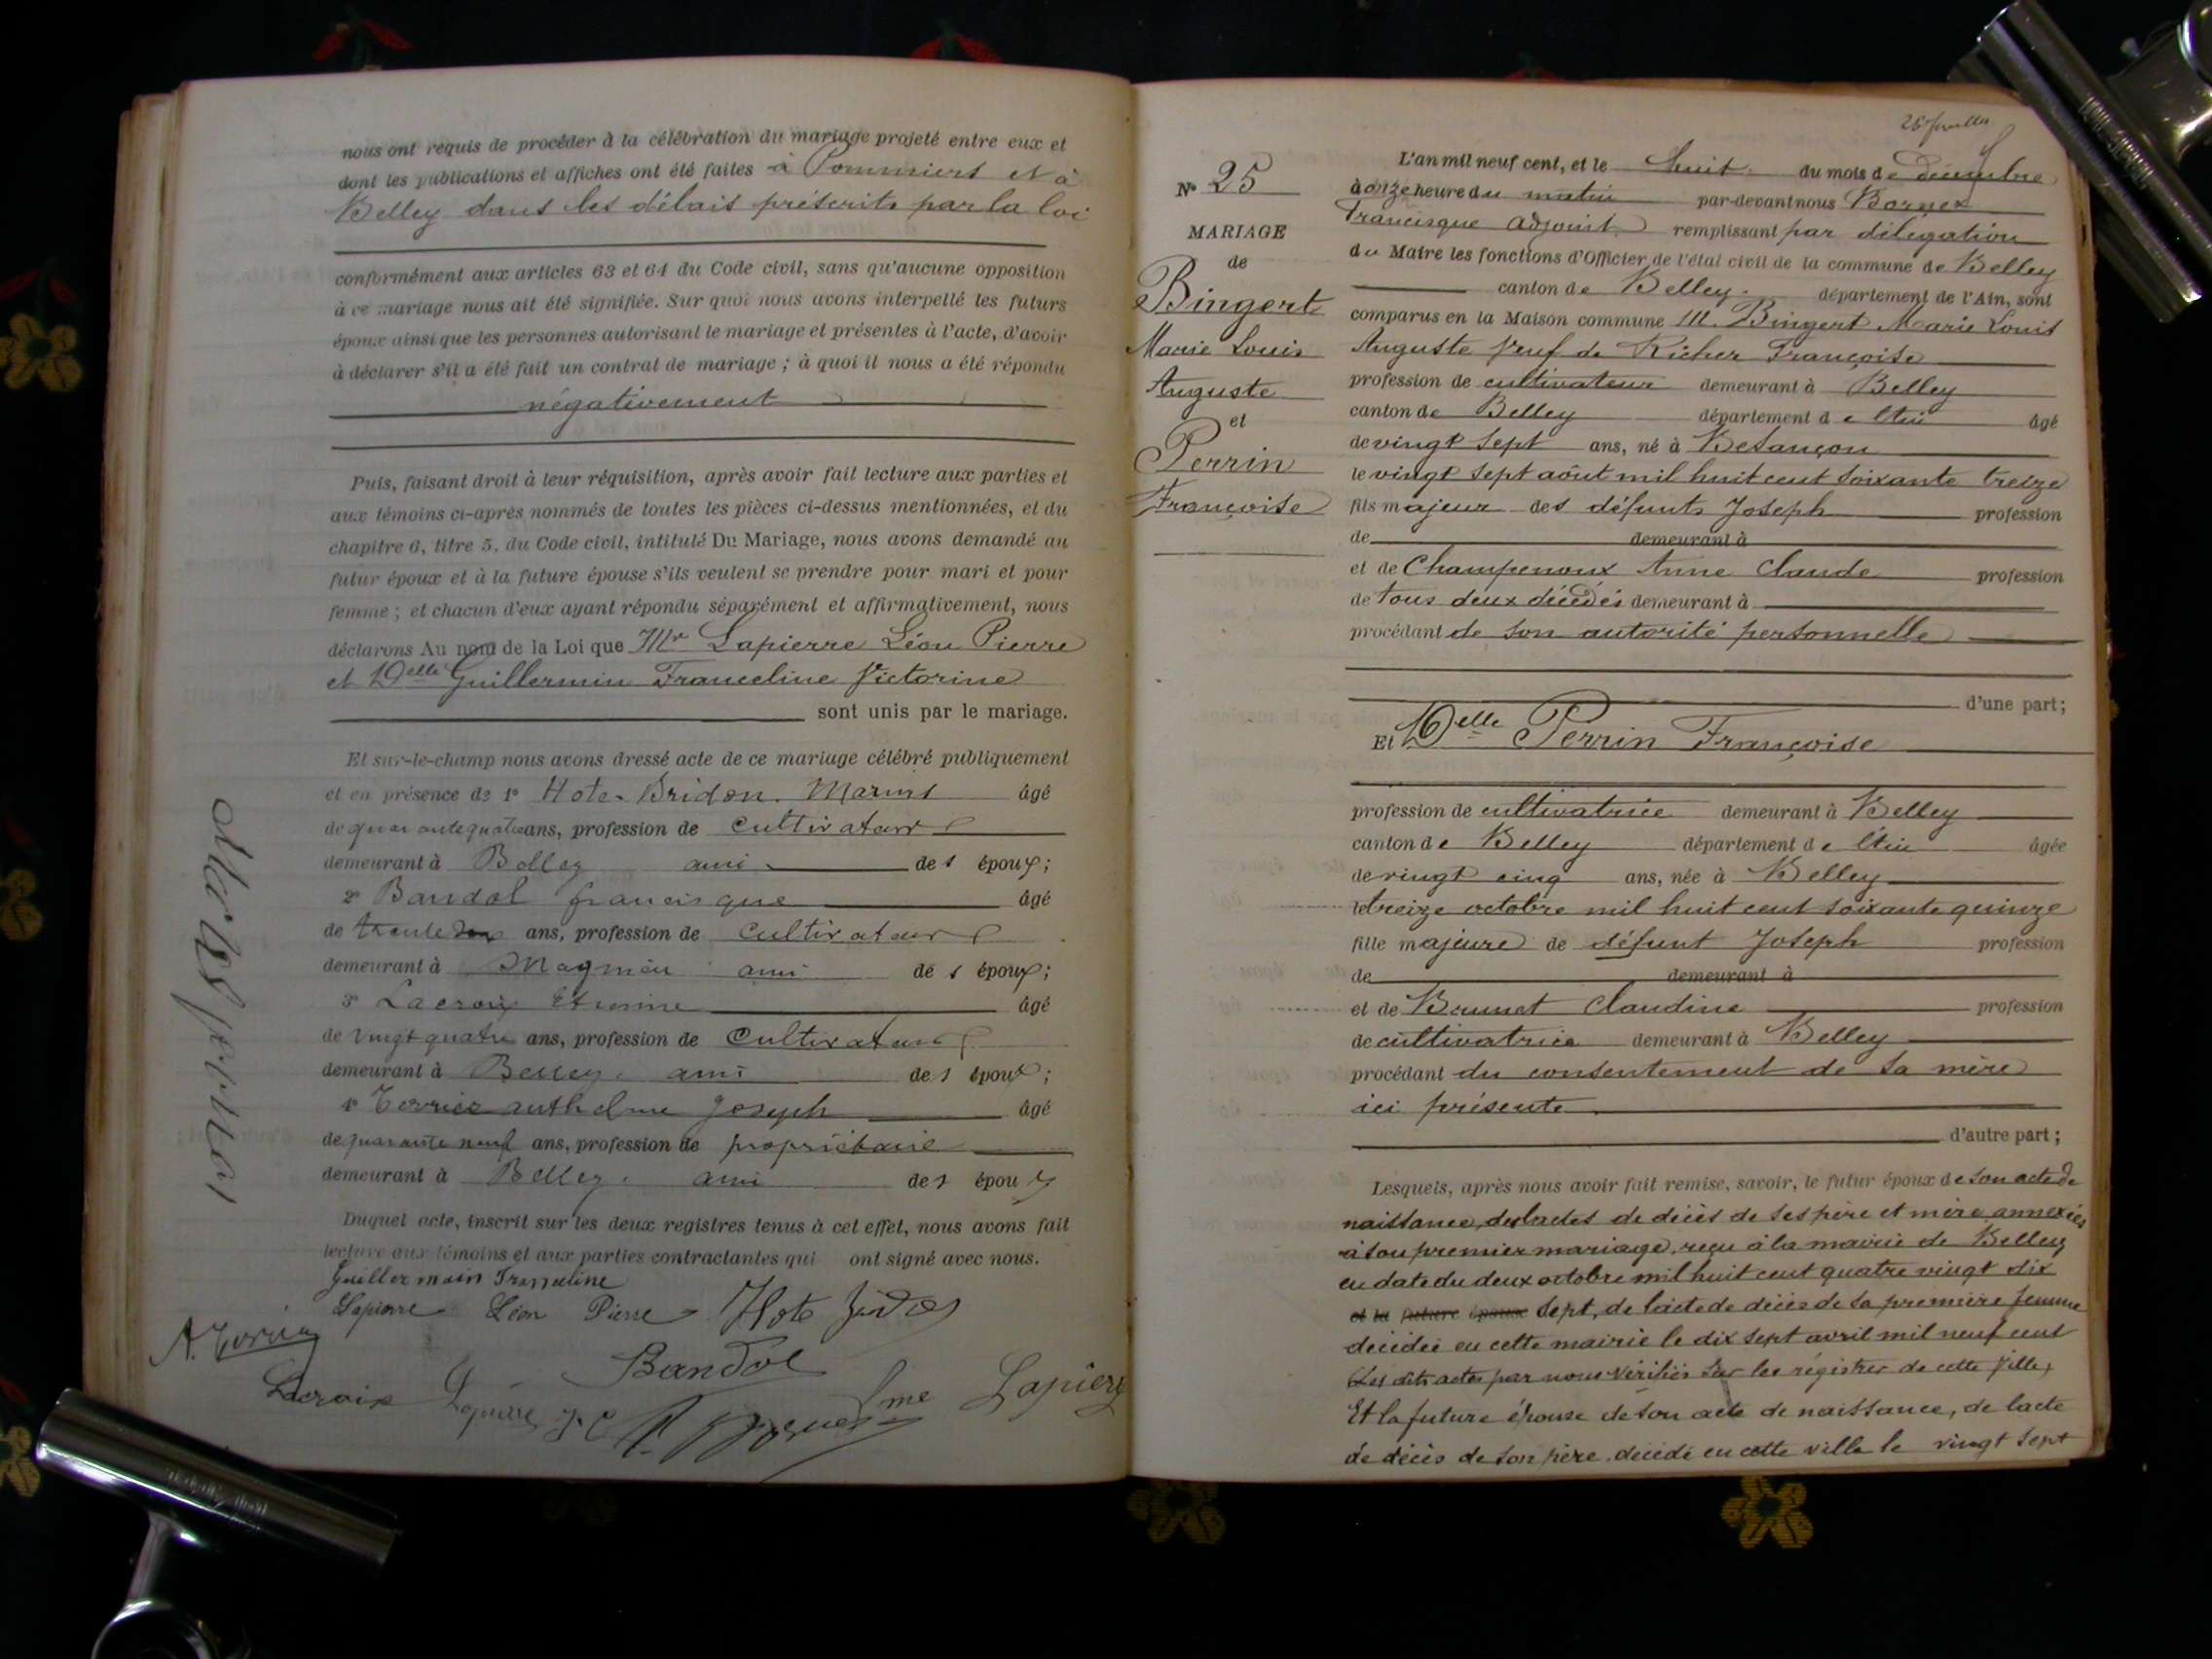 nous ont requis de procéder à la célébration du mariage projeté entre eux et
dont les publications et affiches ont été faites à Pommiers et à
Belley dans les délais préscrits par la loi
conformément aux articles 63 et 64 du Code civil, sans qu'aucune opposition
à ce mariage nous ait été signifiée. Sur quoi nous avons interpellé les futurs
époux ainsi que les personnes autorisant le mariage et présentes à l'acte, d'avoir
à déclarer s'il a été fait un contrat de mariage ; à quoi il nous a été répondu
négativement
Puis, faisant droit à leur réquisition, après avoir fait lecture aux parties et
aux témoins ci-après nommés de toutes les pièces ci-dessus mentionnées, et du
chapitre 6, titre 5, du Code civil, intitulé Du Mariage, nous avons demandé au
futur époux et à la future épouse s'ils veulent se prendre pour mari et pour
femme ; et chacun d'eux ayant répondu séparément et affirmativement, nous
déclarons Au nom de la Loi que Mr Lapierre Léon Pierre
et Delle Guillermin Franceline Victorine
sont unis par le mariage.
Et sur-le-champ nous avons dressé acte de ce mariage célébré publiquement
et en présence de 1° Hote-Bridon Marius âgé
de quarante quatre ans, profession de cultivateur
demeurant à Belley ami des époux ;
2° Bandol francisque âgé
de trente deux ans, profession de cultivateur
demeurant à Magnieu ami des époux ;
3° Lacroix Etienne âgé
de vingt quatre ans, profession de cultivateur
demeurant à Belley ami des époux ;
4° Terrier anthelme Joseph âgé
de quarante neuf ans, profession de propriétaire
demeurant à Belley ami des époux
Duquel acte, inscrit sur les deux registres tenus à cet effet, nous avons fait
lecture aux témoins et aux parties contractantes qui ont signé avec nous.
Guillermin Franceline
Lapierre Léon Pierre Hote
Bandol
Lacroix
Lapierre
25 feuillet
N° 25
MARIAGE
de
Bingert
Marie Louis
Auguste
et
Perrin
Françoise
L'an mil neuf cent, et le huit du mois de décembre
à onze heure du matin par-devant nous Bornex
Francisque adjoint remplissant par délégation
du Maire les fonctions d'Officier de l'état civil de la commune de Belley
canton de Belley département de l'Ain, sont
comparus en la Maison commune M. Bingert Marie Louis
Auguste Veuf de Richer Françoise
profession de cultivateur demeurant à Belley
canton de Belley département de l'Ain âgé
de vingt sept ans, né à Besançon
le vingt sept août mil huit cent soixante treize
fils majeur des défunts Joseph profession
de demeurant à
et de Champenoux Anne Claude profession
de tous deux décédés demeurant à
procédant de son autorité personnelle
d'une part ;
Et Delle Perrin Françoise
profession de cultivatrice demeurant à Belley
canton de Belley département de l'Ain âgée
de vingt cinq ans, née à Belley
le treize octobre mil huit cent soixante quinze
fille majeure de défunt Joseph profession
de demeurant à
et de Brunet Claudine profession
de cultivatrice demeurant à Belley
procédant du consentement de sa mère
ici présente
d'autre part ;
Lesquels, après nous avoir fait remise, savoir, le futur époux de son acte de
naissance, des actes de décès de ses père et mère annexés
à son premier mariage, reçu à la mairie de Belley
en date du deux octobre mil huit cent quatre vingt dix
et la future épouse sept, de l'acte de décès de sa première femme
décédée en cette mairie le dix sept avril mil neuf cent
Les dits actes par nous vérifiés sur les régistres de cette ville,
Et la future épouse de son acte de naissance, de l'acte
de décès de son père, décédé en cette ville le vingt sept